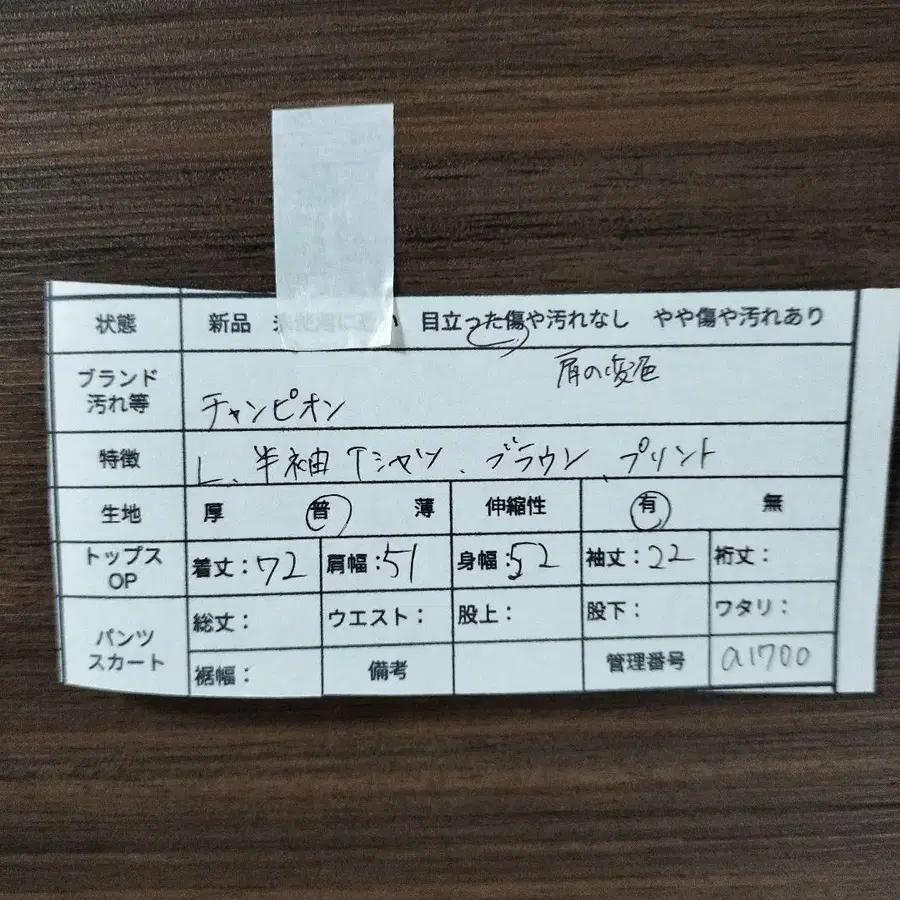 状態 新品 い 目立った傷や汚れなし やや傷や汚れあり
ブランド汚れ等 チャンピオン 肩の変色
特徴 L、半袖Tシャツ、ブラウン、プリント
生地 厚 普 薄 伸縮性 有 無
トップス OP 着丈:72 肩幅:51 身幅:52 袖丈:22 裄丈:
パンツ スカート 総丈: ウエスト: 股上: 股下: ワタリ:
裾幅: 備考 管理番号 a1700